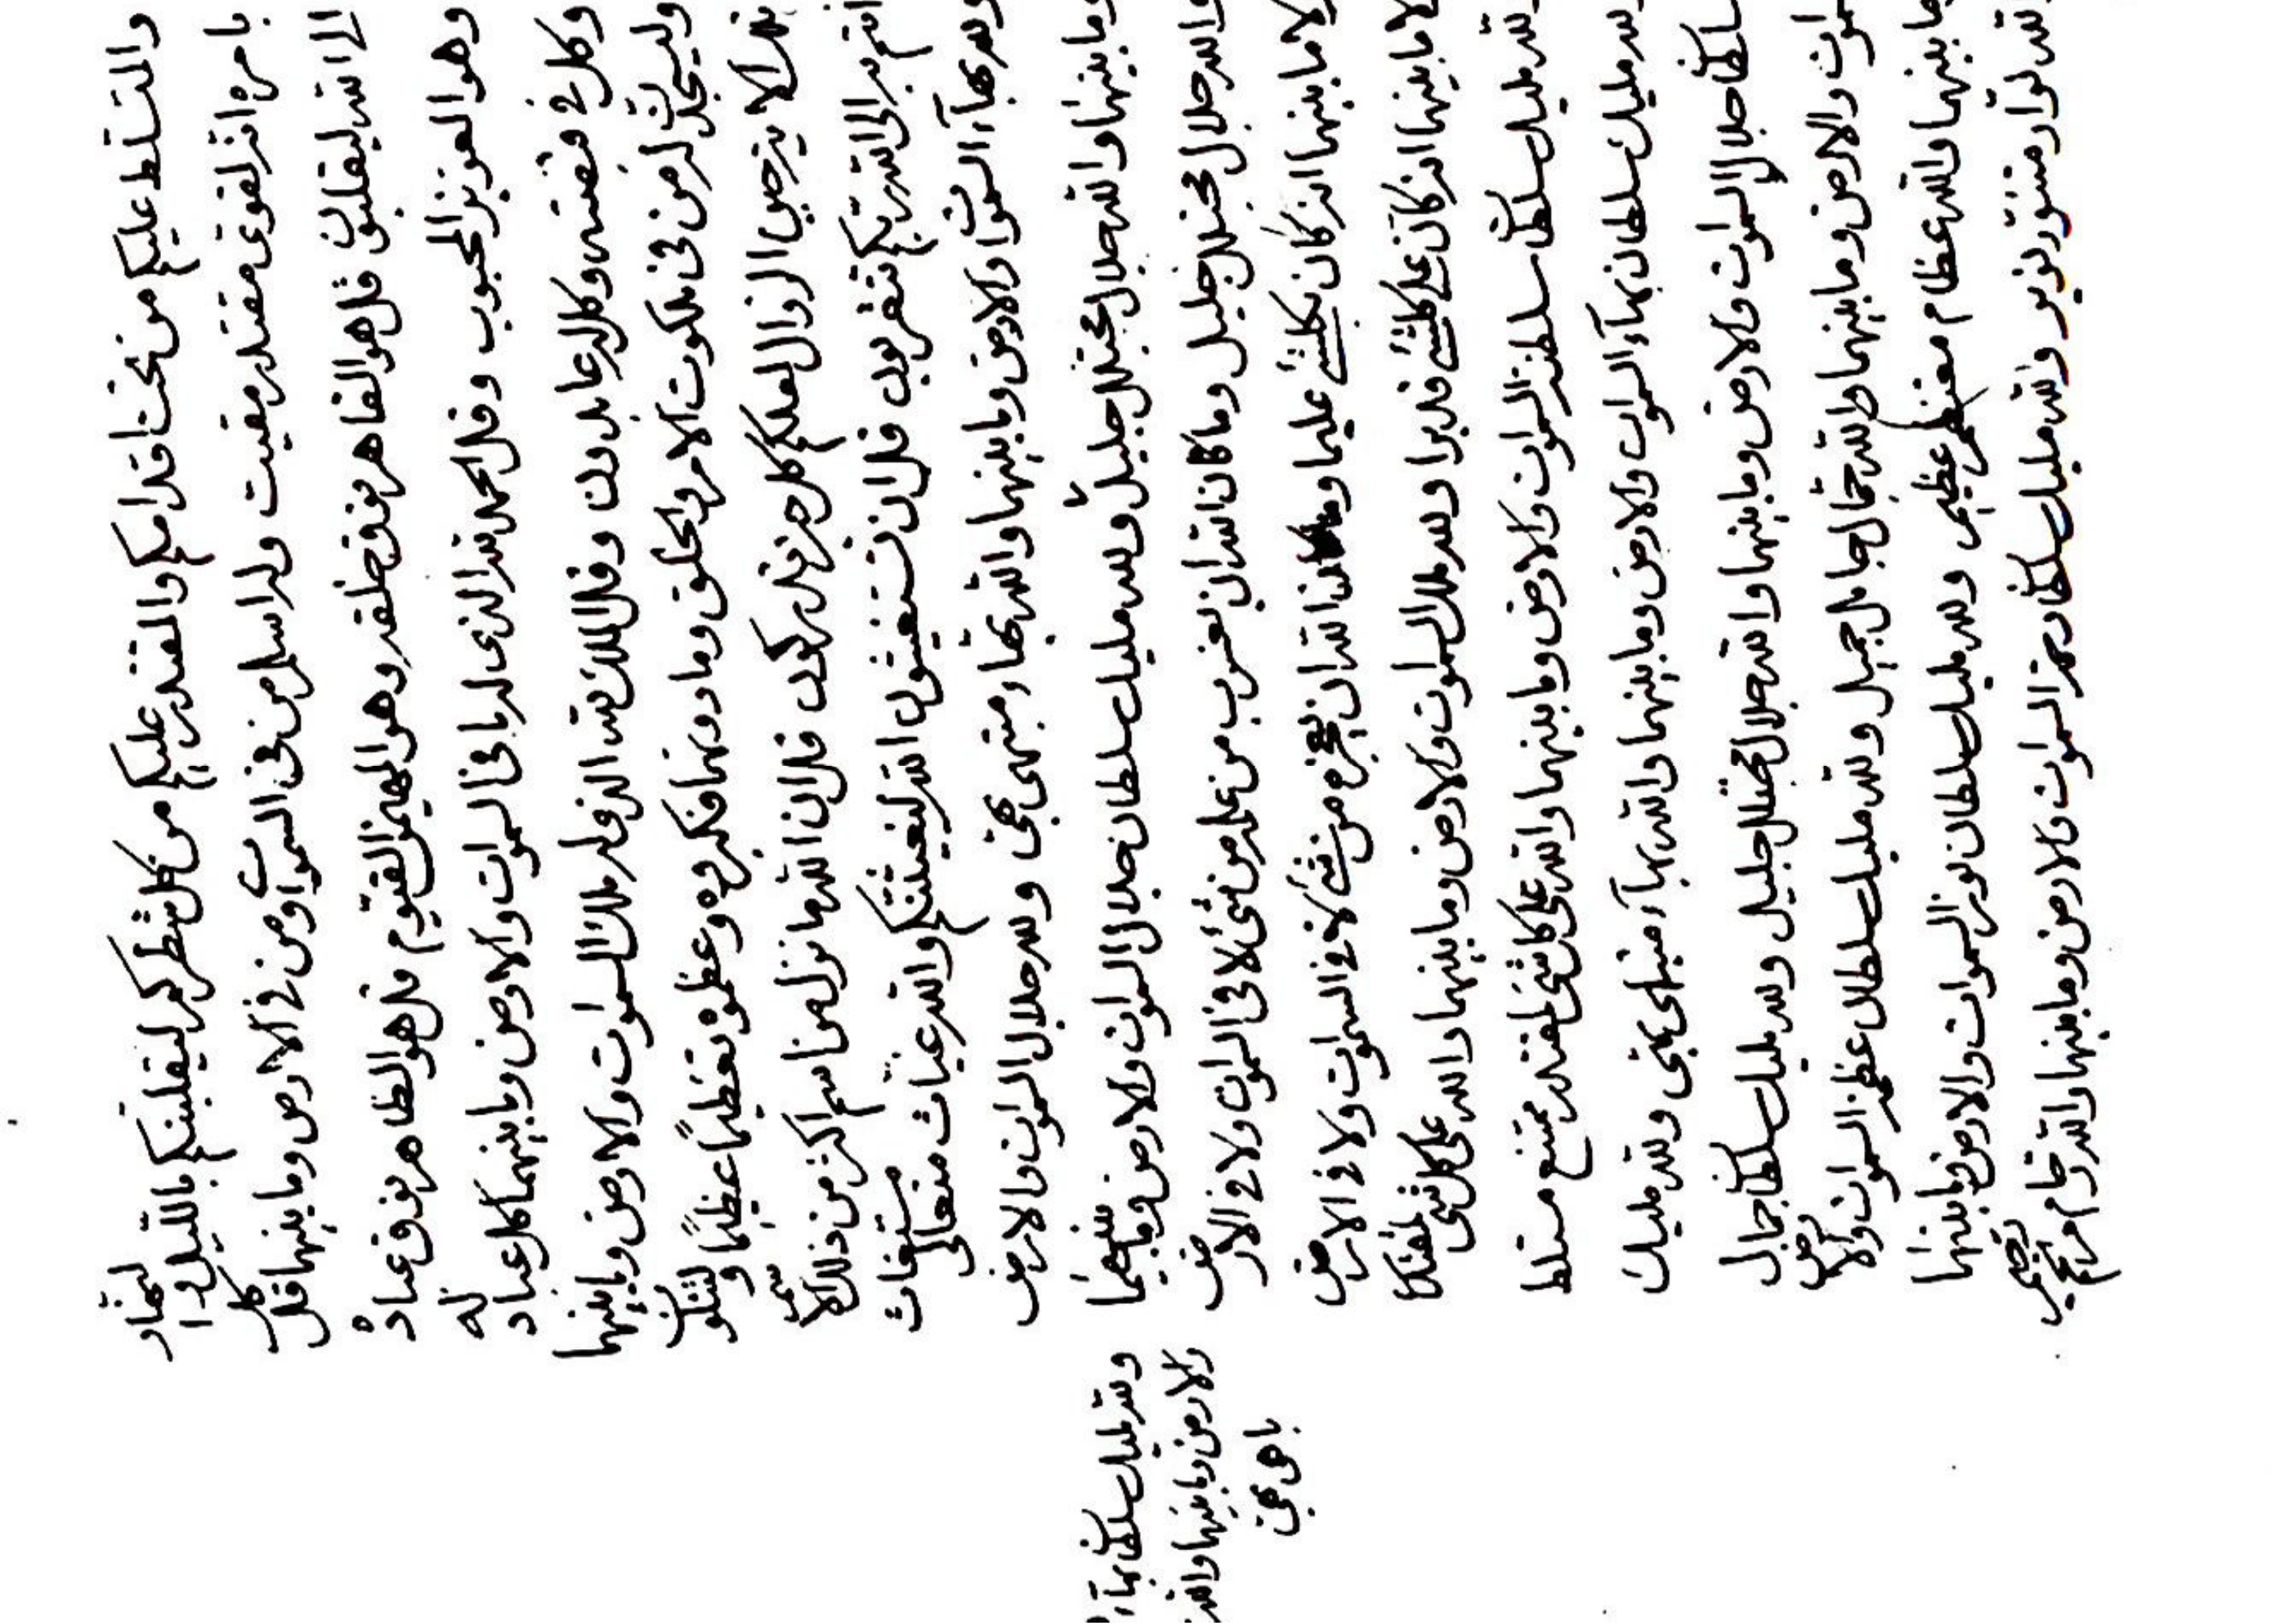 والمتسلط عليكم من تحت اقدامكم والمقتدر عليكم من كل شطركم ليقلبنكم بالليل و النهار
بامره انه لقوى مقتدر مقيت وله اسلم من فى السموات ومن فى الارض وما بينهما قل كل
الى الله ليقلبون قل هو القاهر فوق خلقه وهو المهيمن القيوم قل هو الظاهر فوق عباده
وهو العزيز المحبوب وقل الحمد لله الذى له ما فى السموات والارض وما بينهما كل عباد له
وكل فى قبضته وكل له عابدون وقل الملك لله الذى له ملك السموات والارض وما بينهما
وليسجد له من فى ملكوت الامر والخلق وما دونهما فكبره وعظموه تعظيما عظيما و لتتلون
الا يرضين الزوال لعلكم كل حرف تدركون قل ان الله ما نزل من اسم اكثر من ذلك الاسم
انتم به الى الله ربكم تتقربون قل ان تستغيثون الله ليغيثنكم والله غياث مستغاث متعالى
ولله بهاء السموات والارض وما بينهما والله بهاء مبتهى بهى ولله جلال السموات والارض
وما بينهما والله جلال مجتلل جليل ولله مليك سلطان جلال السموات والارض وما بينهما
والله جلال مجتلل جليل وما كان الله ان يعزب من علمه من شئ لا فى السموات ولا فى الارض
ولا ما بينهما انه كان بكلشئ عليما وما كان الله ان يعجزه من شئ لا فى السموات ولا فى الارض
ولا ما بينهما انه كان على كلشئ قديرا ولله ملك السموات والارض وما بينهما والله على كل شئ لمقتدر
لله مليك سلطان سلطنة السموات والارض وما بينهما والله على كل شئ لمقتدر ممتنع متسلط
لله مليك سلطان بهاء السموات والارض وما بينهما والله بهاء مبتهى بهى ولله مليك
سلطان جلال السموات والارض وما بينهما والله جلال مجتلل جليل ولله مليك سلطان جمال
السموات والارض وما بينهما والله جمال جامل جميل ولله مليك سلطان عظمة السموات والارض
وما بينهما والله عظام معتظم عظيم ولله مليك سلطان نور السموات والارض وما بينهما
والله نوار متنور نوير ولله مليك سلطان رحمة السموات والارض وما بينهما والله رحام مرتحم رحيم
ولله مليك سلطان بهاء
والارض وما بينهما والله
باهى بهى